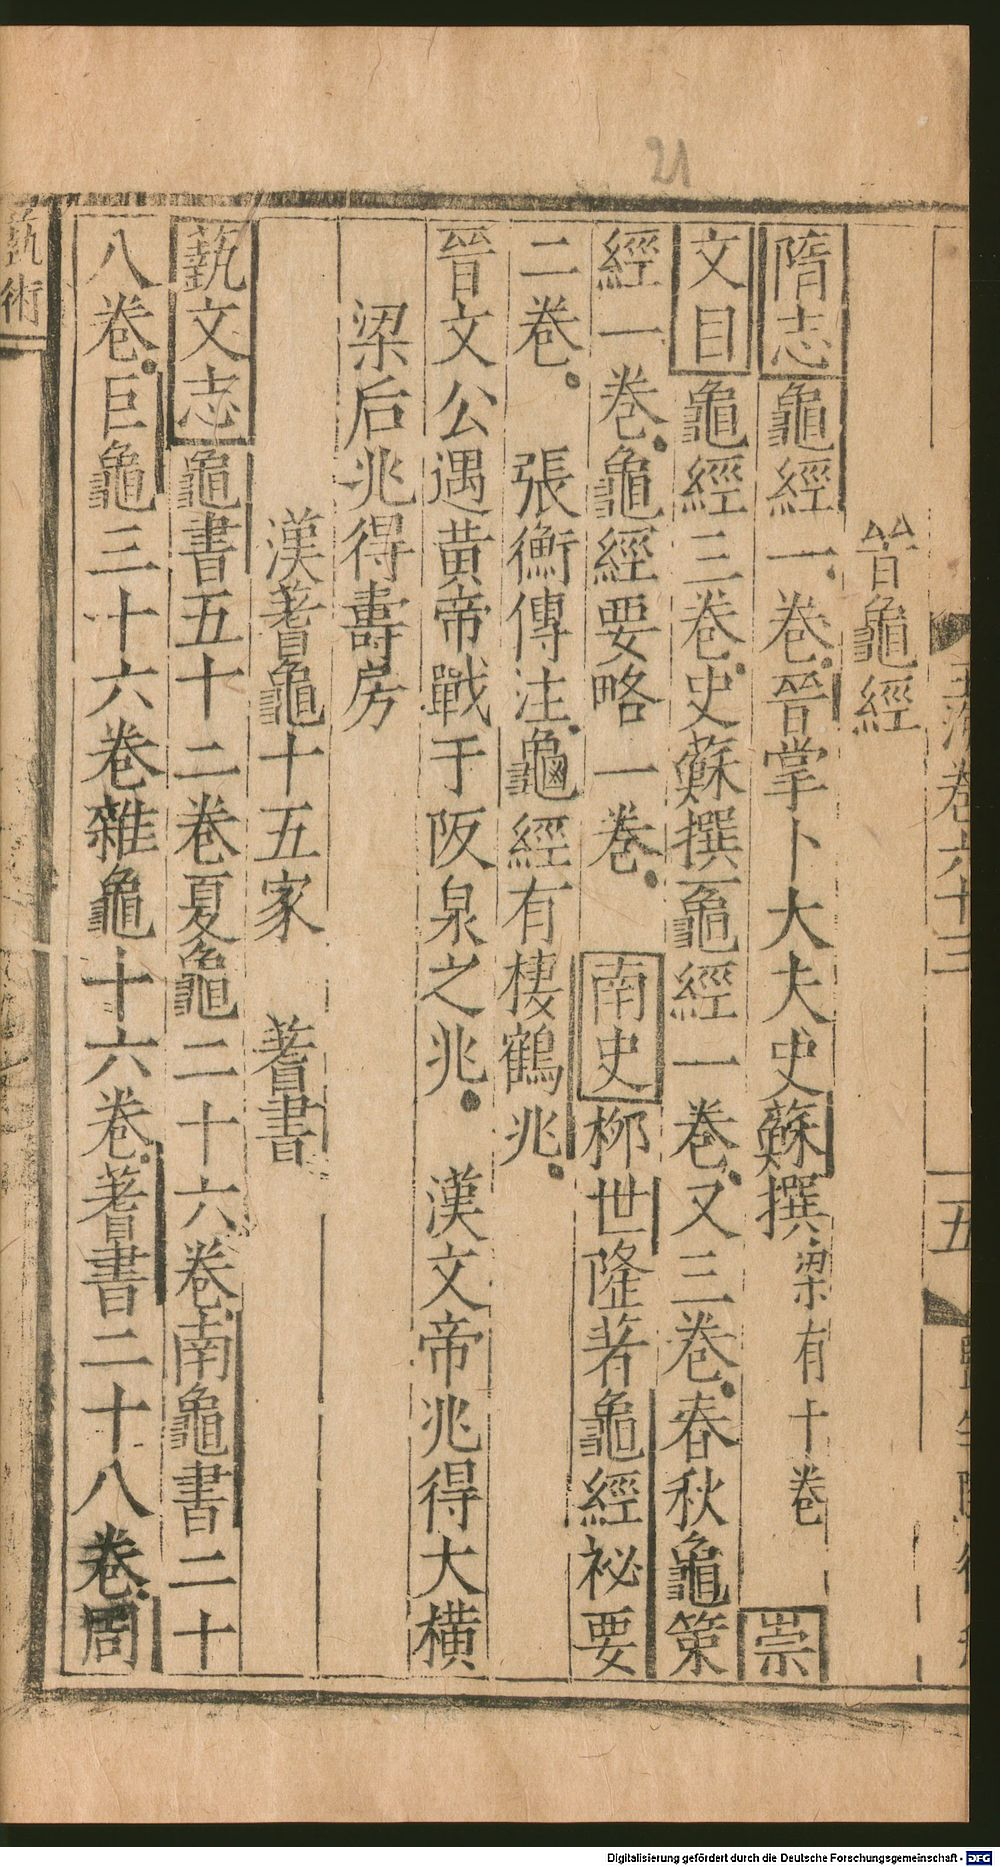 21
玉海卷六十三
五
晉龜經
隋志龜經一卷晉掌卜大夫史蘇撰梁有十卷 崇
文目龜經三卷史蘇撰龜經一卷又三卷春秋龜策
經一卷龜經要略一卷 南史柳世隆著龜經祕要
二卷 張衡傳注龜經有棲鶴兆
晉文公遇黃帝戰于阪泉之兆 漢文帝兆得大橫
梁后兆得壽房
漢蓍龜十五家 蓍書
藝文志龜書五十二卷夏龜二十六卷南龜書二十
八卷巨龜三十六卷雜龜十六卷蓍書二十八卷周
藝術
Digitalisierung gefördert durch die Deutsche Forschungsgemeinschaft - DFG